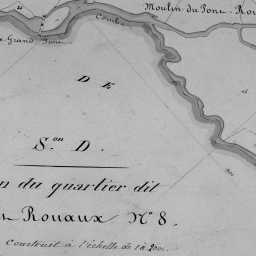 Moulin du Pont Rou
Grand Pont
D E
S.on D.
n du quartier dit
Rouaux N.º 8.
Construit à l'échelle de 1 à